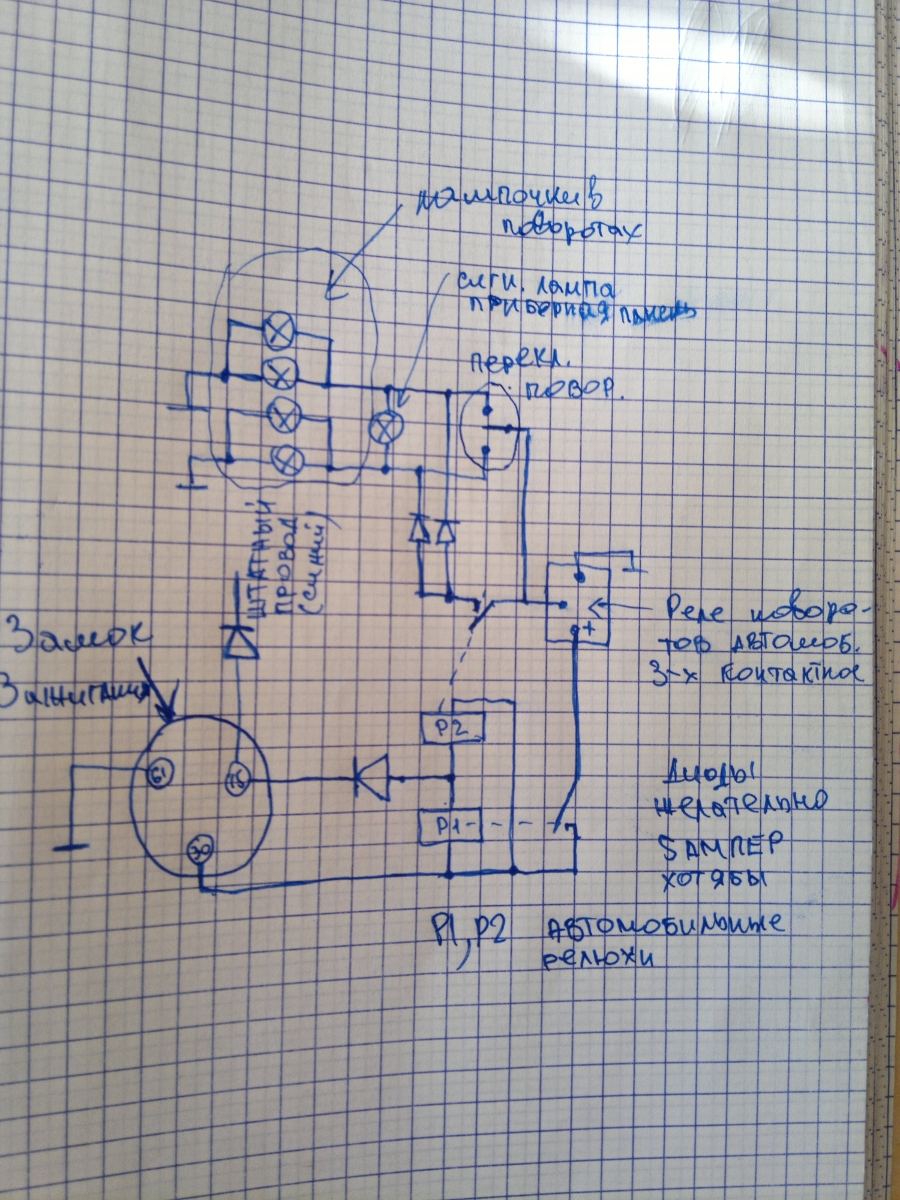 лампочки в
поворотах
сигн. лампа
приборная панель
перекл.
повор.
штатный
провод
(синий)
Замок
Зажигания
Реле поворо-
тов автомоб.
3-х контактное
+
P2
61
15
P1
30
Диоды
желательно
5 Ампер
хотябы
P1, P2 автомобильные
релюхи